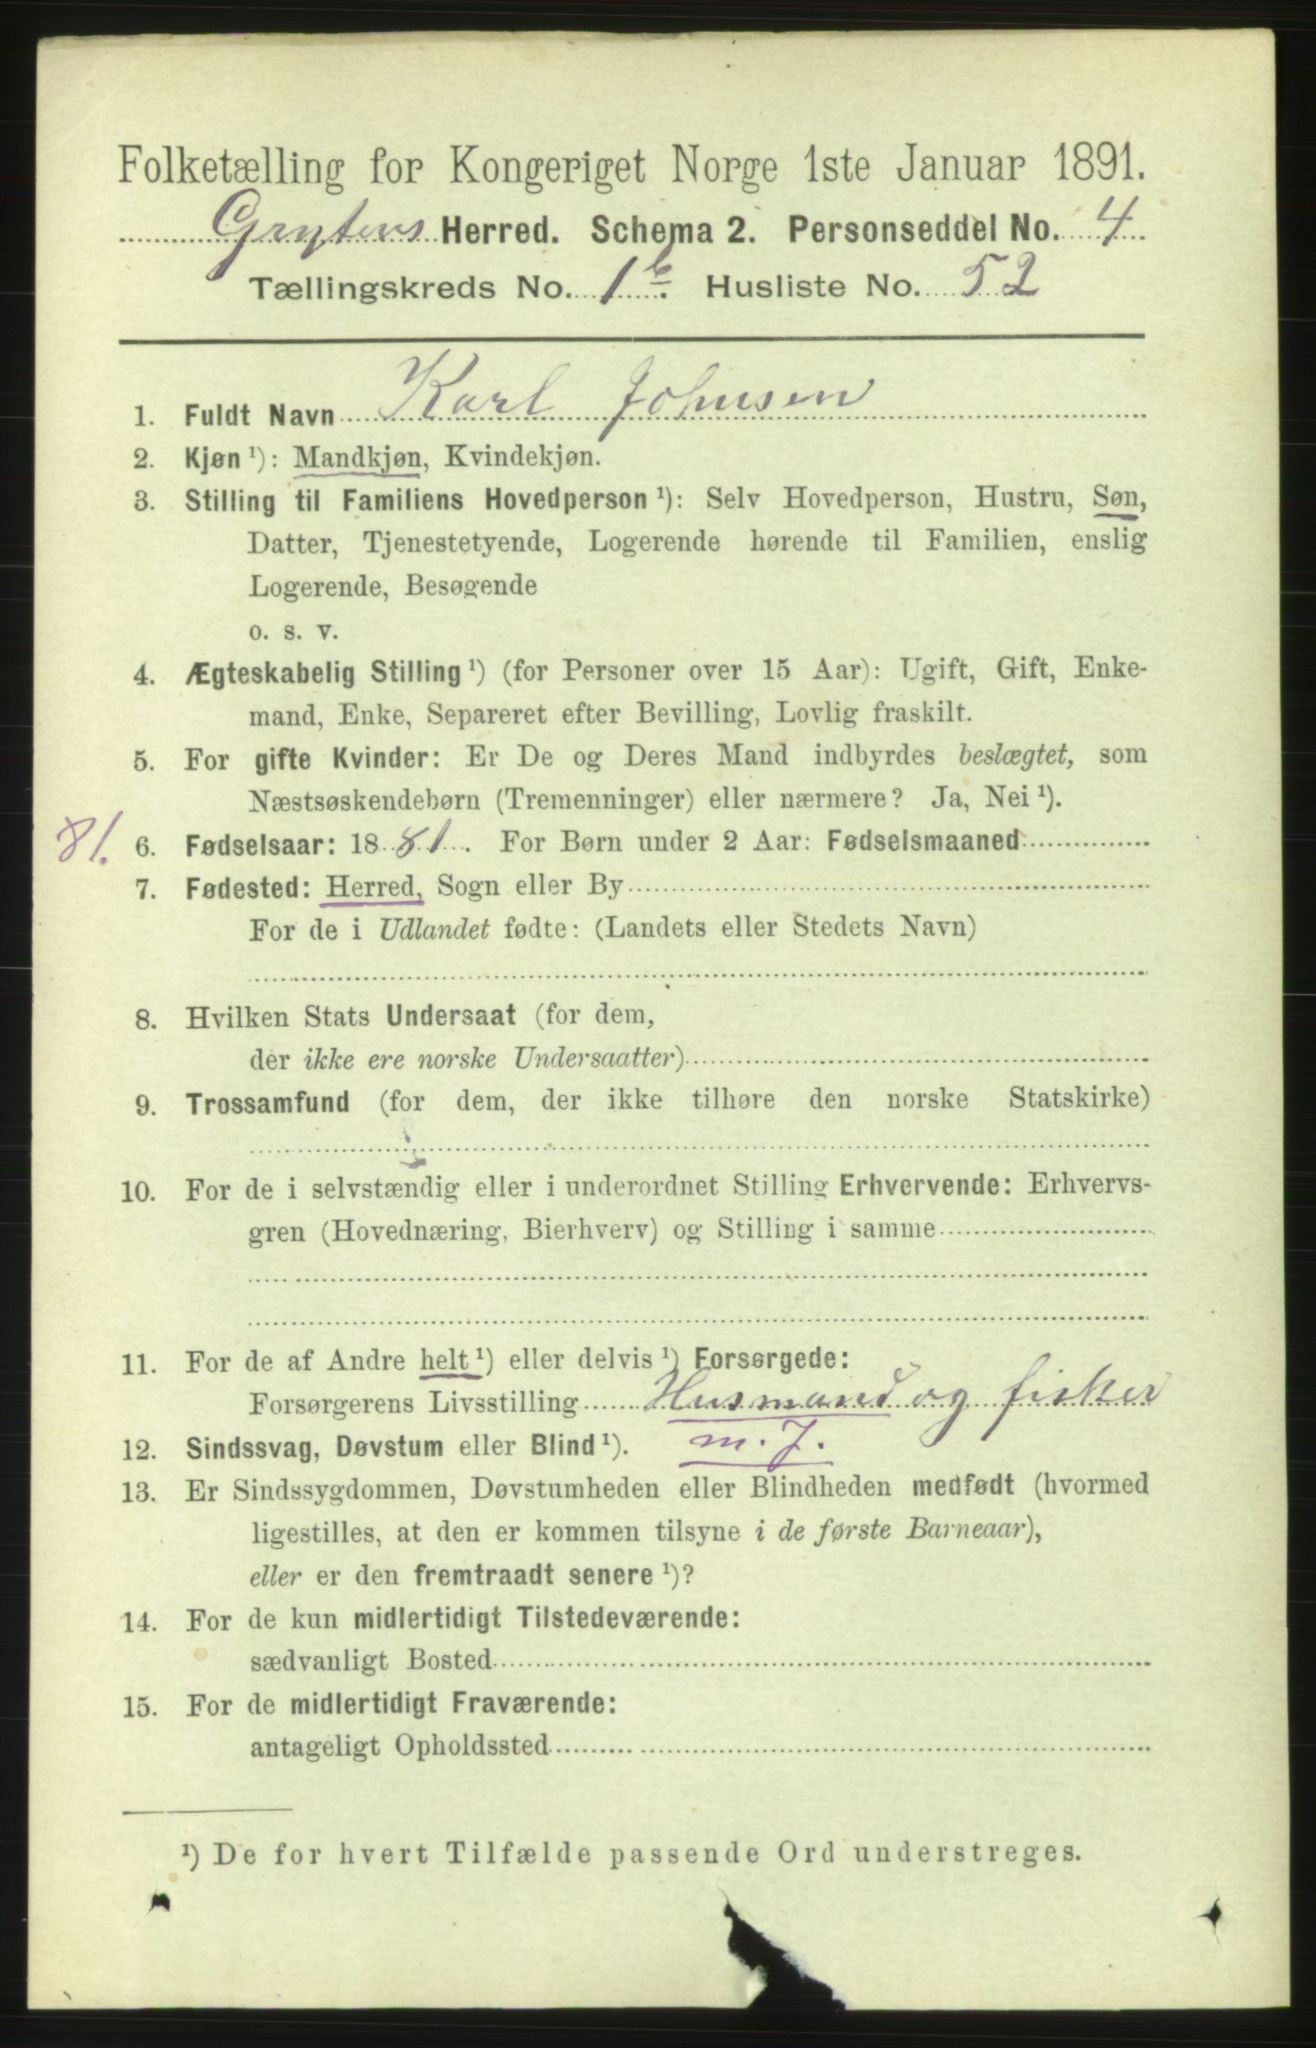 Folketælling for Kongeriget Norge 1ste Januar 1891.
Grytens Herred. Schema 2. Personseddel No. 4
Tællingskreds No. 1 b. Husliste No. 52
1. Fuldt Navn Karl Johnsen
2. Kjøn ¹): Mandkjøn, Kvindekjøn.
3. Stilling til Familiens Hovedperson ¹): Selv Hovedperson, Hustru, Søn,
Datter, Tjenestetyende, Logerende hørende til Familien, enslig
Logerende, Besøgende
o. s. v.
4. Ægteskabelig Stilling ¹) (for Personer over 15 Aar): Ugift, Gift, Enke-
mand, Enke, Separeret efter Bevilling, Lovlig fraskilt.
5. For gifte Kvinder: Er De og Deres Mand indbyrdes beslægtet, som
Næstsøskendebørn (Tremenninger) eller nærmere? Ja, Nei ¹).
81. 6. Fødselsaar: 1881. For Børn under 2 Aar: Fødselsmaaned
7. Fødested: Herred, Sogn eller By
For de i Udlandet fødte: (Landets eller Stedets Navn)
8. Hvilken Stats Undersaat (for dem,
der ikke ere norske Undersaatter)
9. Trossamfund (for dem, der ikke tilhøre den norske Statskirke)
10. For de i selvstændig eller i underordnet Stilling Erhvervende: Erhvervs-
gren (Hovednæring, Bierhverv) og Stilling i samme
11. For de af Andre helt ¹) eller delvis ¹) Forsørgede:
Forsørgerens Livsstilling Husmand og fisker
12. Sindssvag, Døvstum eller Blind ¹). m. J.
13. Er Sindssygdommen, Døvstumheden eller Blindheden medfødt (hvormed
ligestilles, at den er kommen tilsyne i de første Barneaar),
eller er den fremtraadt senere ¹)?
14. For de kun midlertidigt Tilstedeværende:
sædvanligt Bosted
15. For de midlertidigt Fraværende:
antageligt Opholdssted
¹) De for hvert Tilfælde passende Ord understreges.